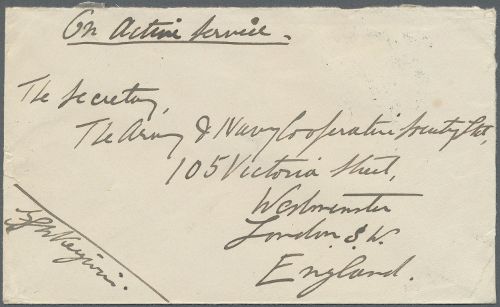 On Active Service.
The Secretary,
The Army & Navy Cooperative Society Ltd,
105 Victoria Street,
Westminster
London S.W.
England.